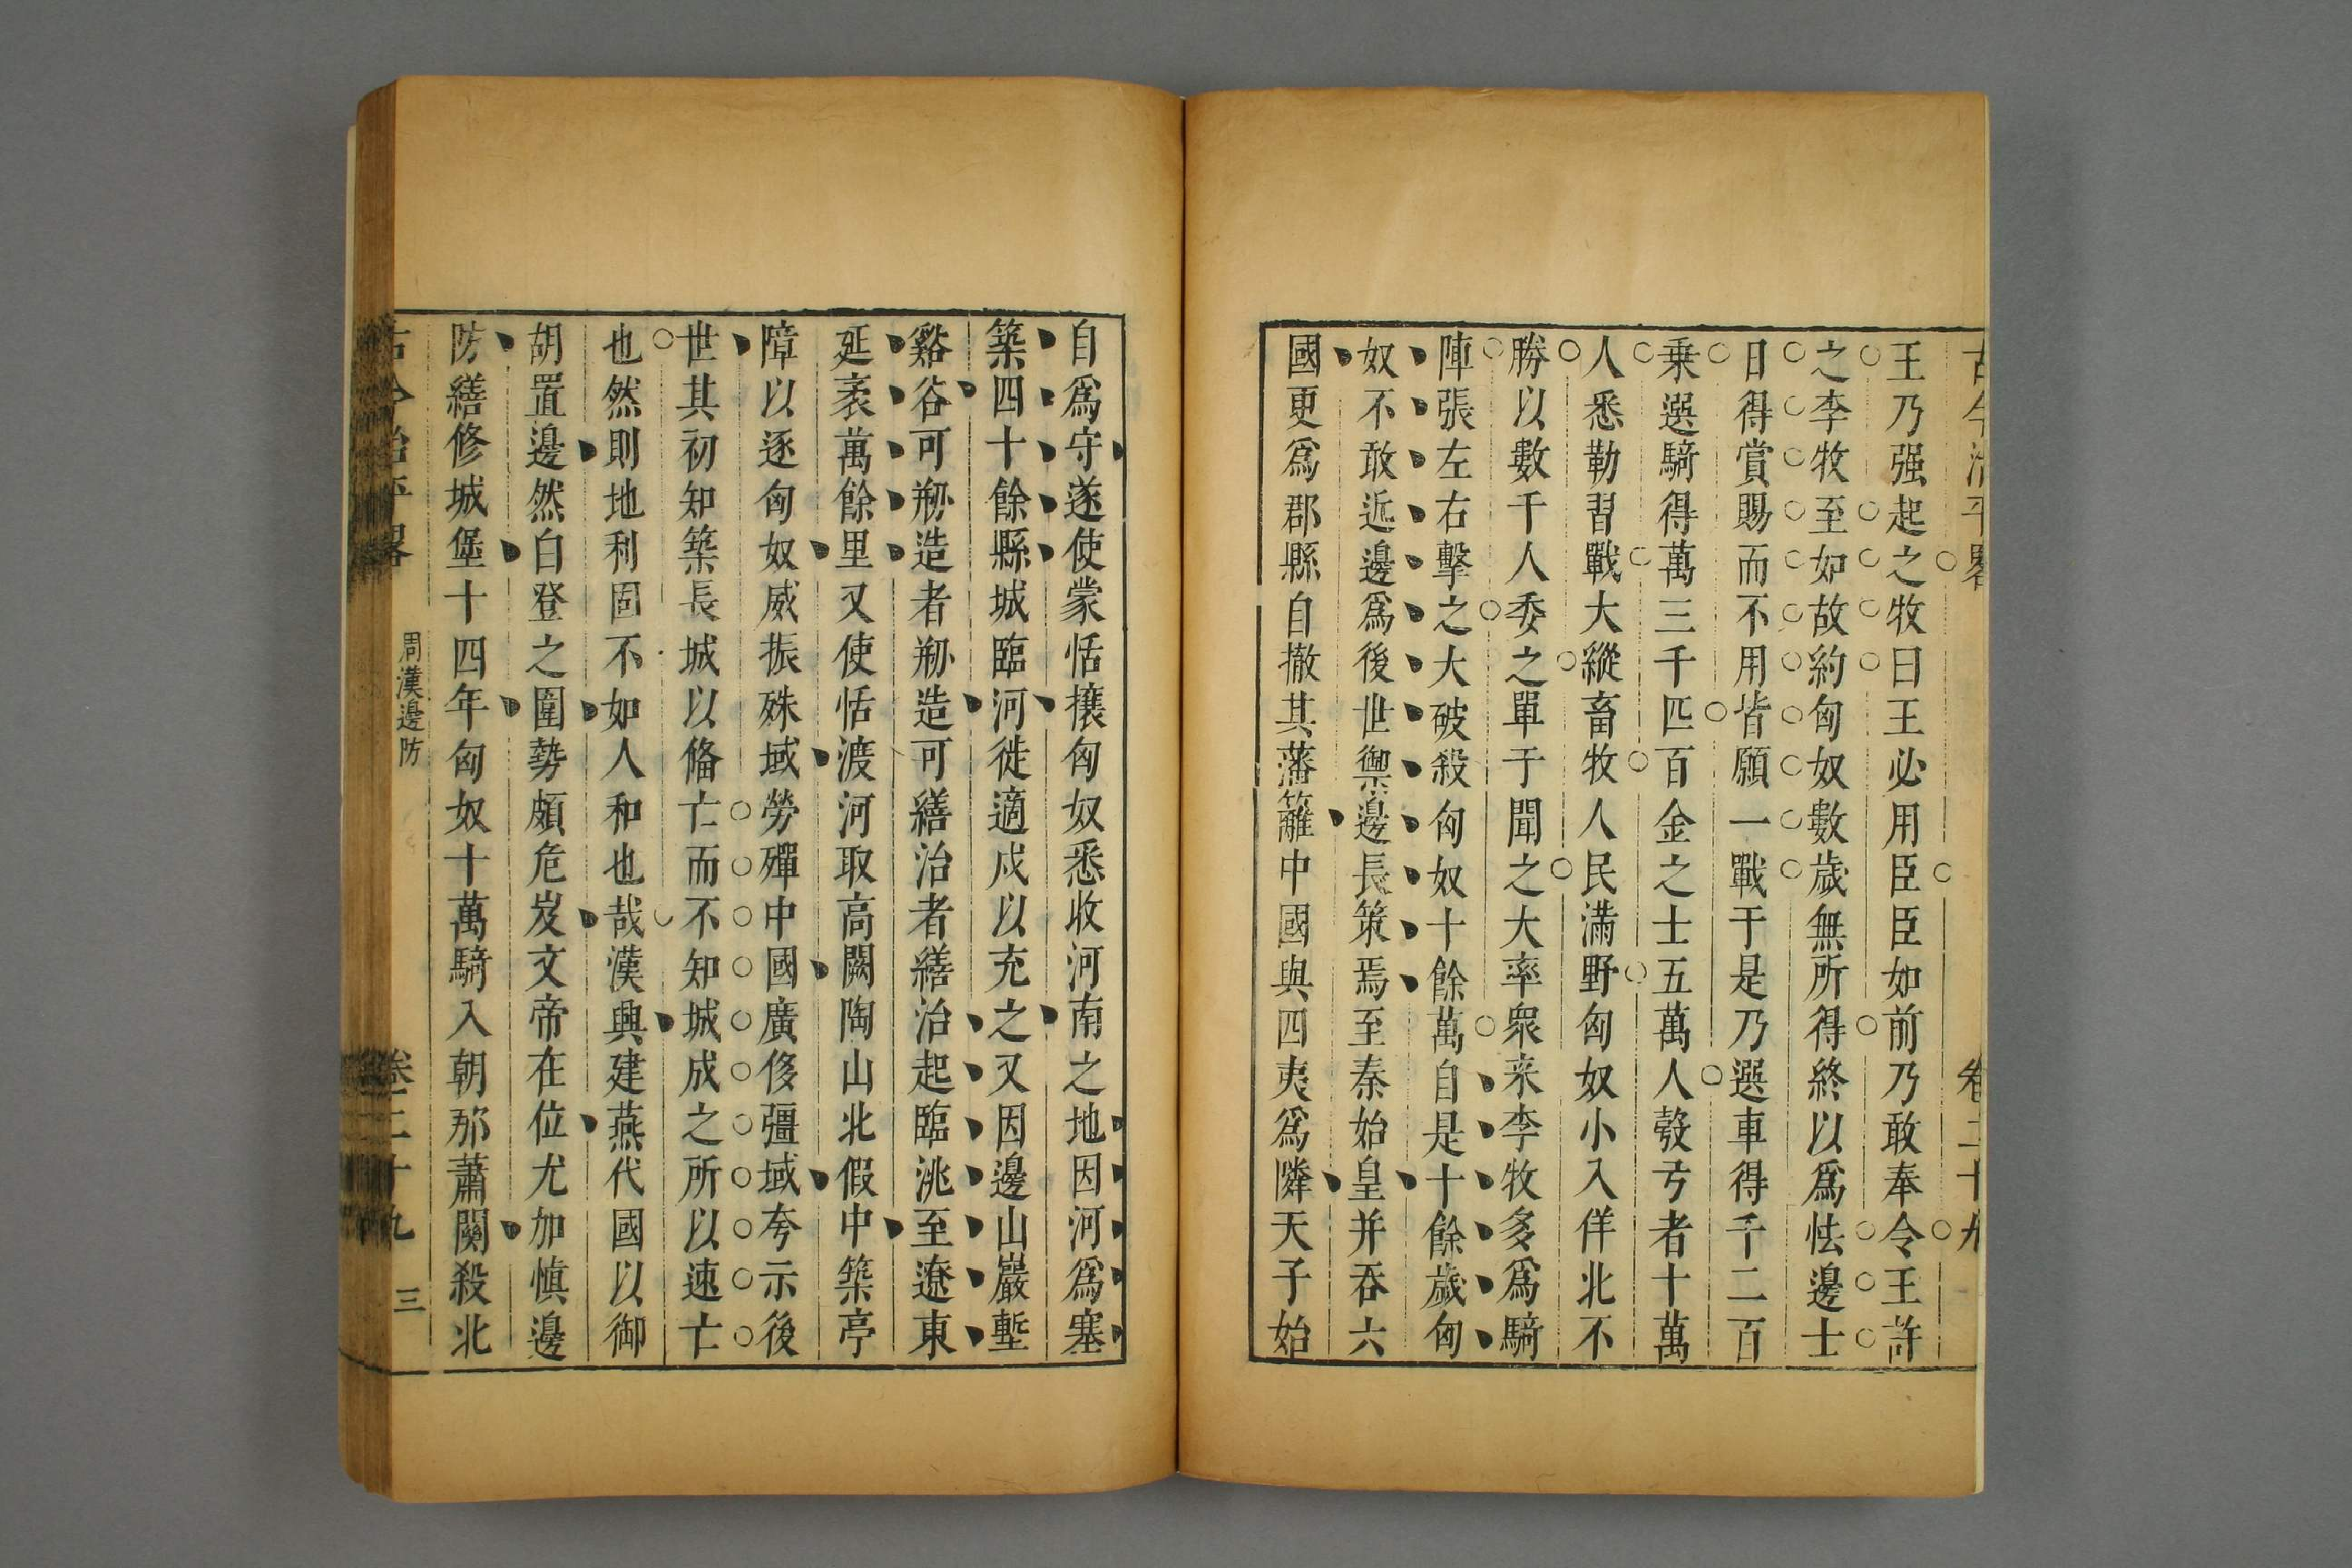 古今治平畧 卷二十九
王乃强起之牧曰王必用臣臣如前乃敢奉令王許
之李牧至如故約匈奴數歲無所得終以爲怯邊士
日得賞賜而不用皆願一戰于是乃選車得千二百
乗選騎得萬三千匹百金之士五萬人彀弓者十萬
人悉勒習戰大縱畜牧人民滿野匈奴小入佯北不
勝以數千人委之單于聞之大率衆来李牧多爲騎
陣張左右擊之大破殺匈奴十餘萬自是十餘歲匈
奴不敢近邊爲後世禦邊長策焉至秦始皇并吞六
國更爲郡縣自撤其藩籬中國與四夷爲隣天子始
自爲守遂使蒙恬攘匈奴悉收河南之地因河爲塞
築四十餘縣城臨河徙適戍以充之又因邊山巖塹
谿谷可剏造者剏造可繕治者繕治起臨洮至遼東
延袤萬餘里又使恬渡河取高闕陶山北假中築亭
障以逐匈奴威振殊域勞殫中國廣侈彊域夸示後
世其初知築長城以俻亡而不知城成之所以速亡
也然則地利固不如人和也哉漢興建燕代國以御
胡置邊然白登之圍勢頗危岌文帝在位尤加慎邊
防繕修城堡十四年匈奴十萬騎入朝那蕭關殺北
古今治平畧 周漢邊防 卷二十九 三